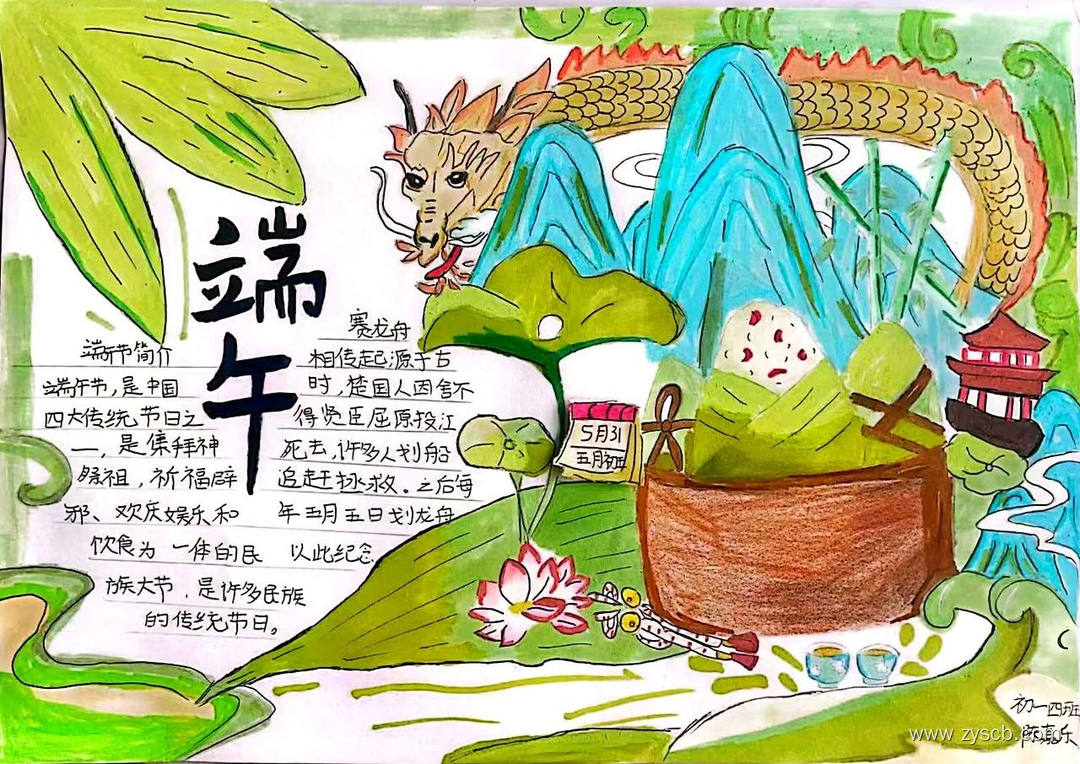 端
午
端午节简介
端午节,是中国
四大传统节日之
一,是集拜神
祭祖,祈福辟
邪、欢庆娱乐和
饮食为一体的民
族大节,是许多民族
的传统节日。
赛龙舟
相传起源于古
时,楚国人因舍不
得贤臣屈原投江
死去,许多人划船
追赶拯救。之后每
年五月五日划龙舟
以此纪念
5月31
五月初五
初一四班
陈嘉乐
www.zyscb.c